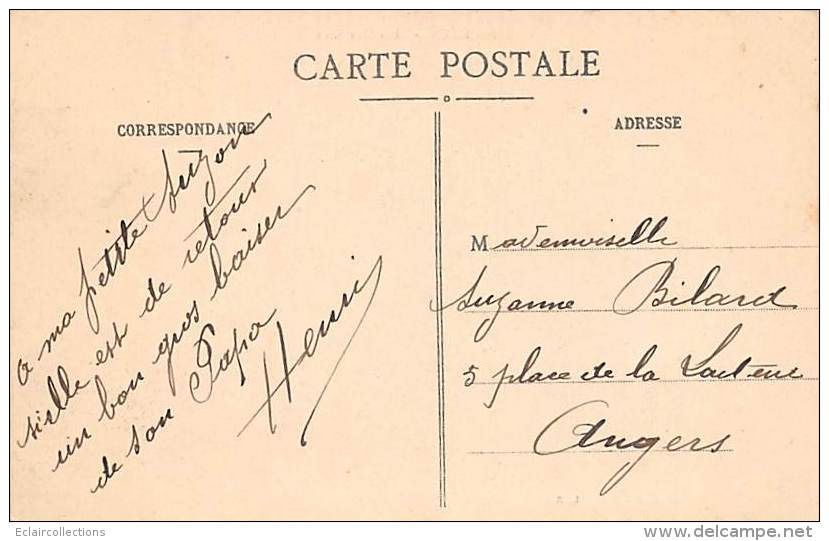 CARTE POSTALE
CORRESPONDANCE
ADRESSE
a ma petite Suzon
si elle est de retour
un bon gros baiser
de son Papa
Henri
Mademoiselle
Suzanne Bilard
5 place de la
Angers
Eclaircollections
www.delcampe.net